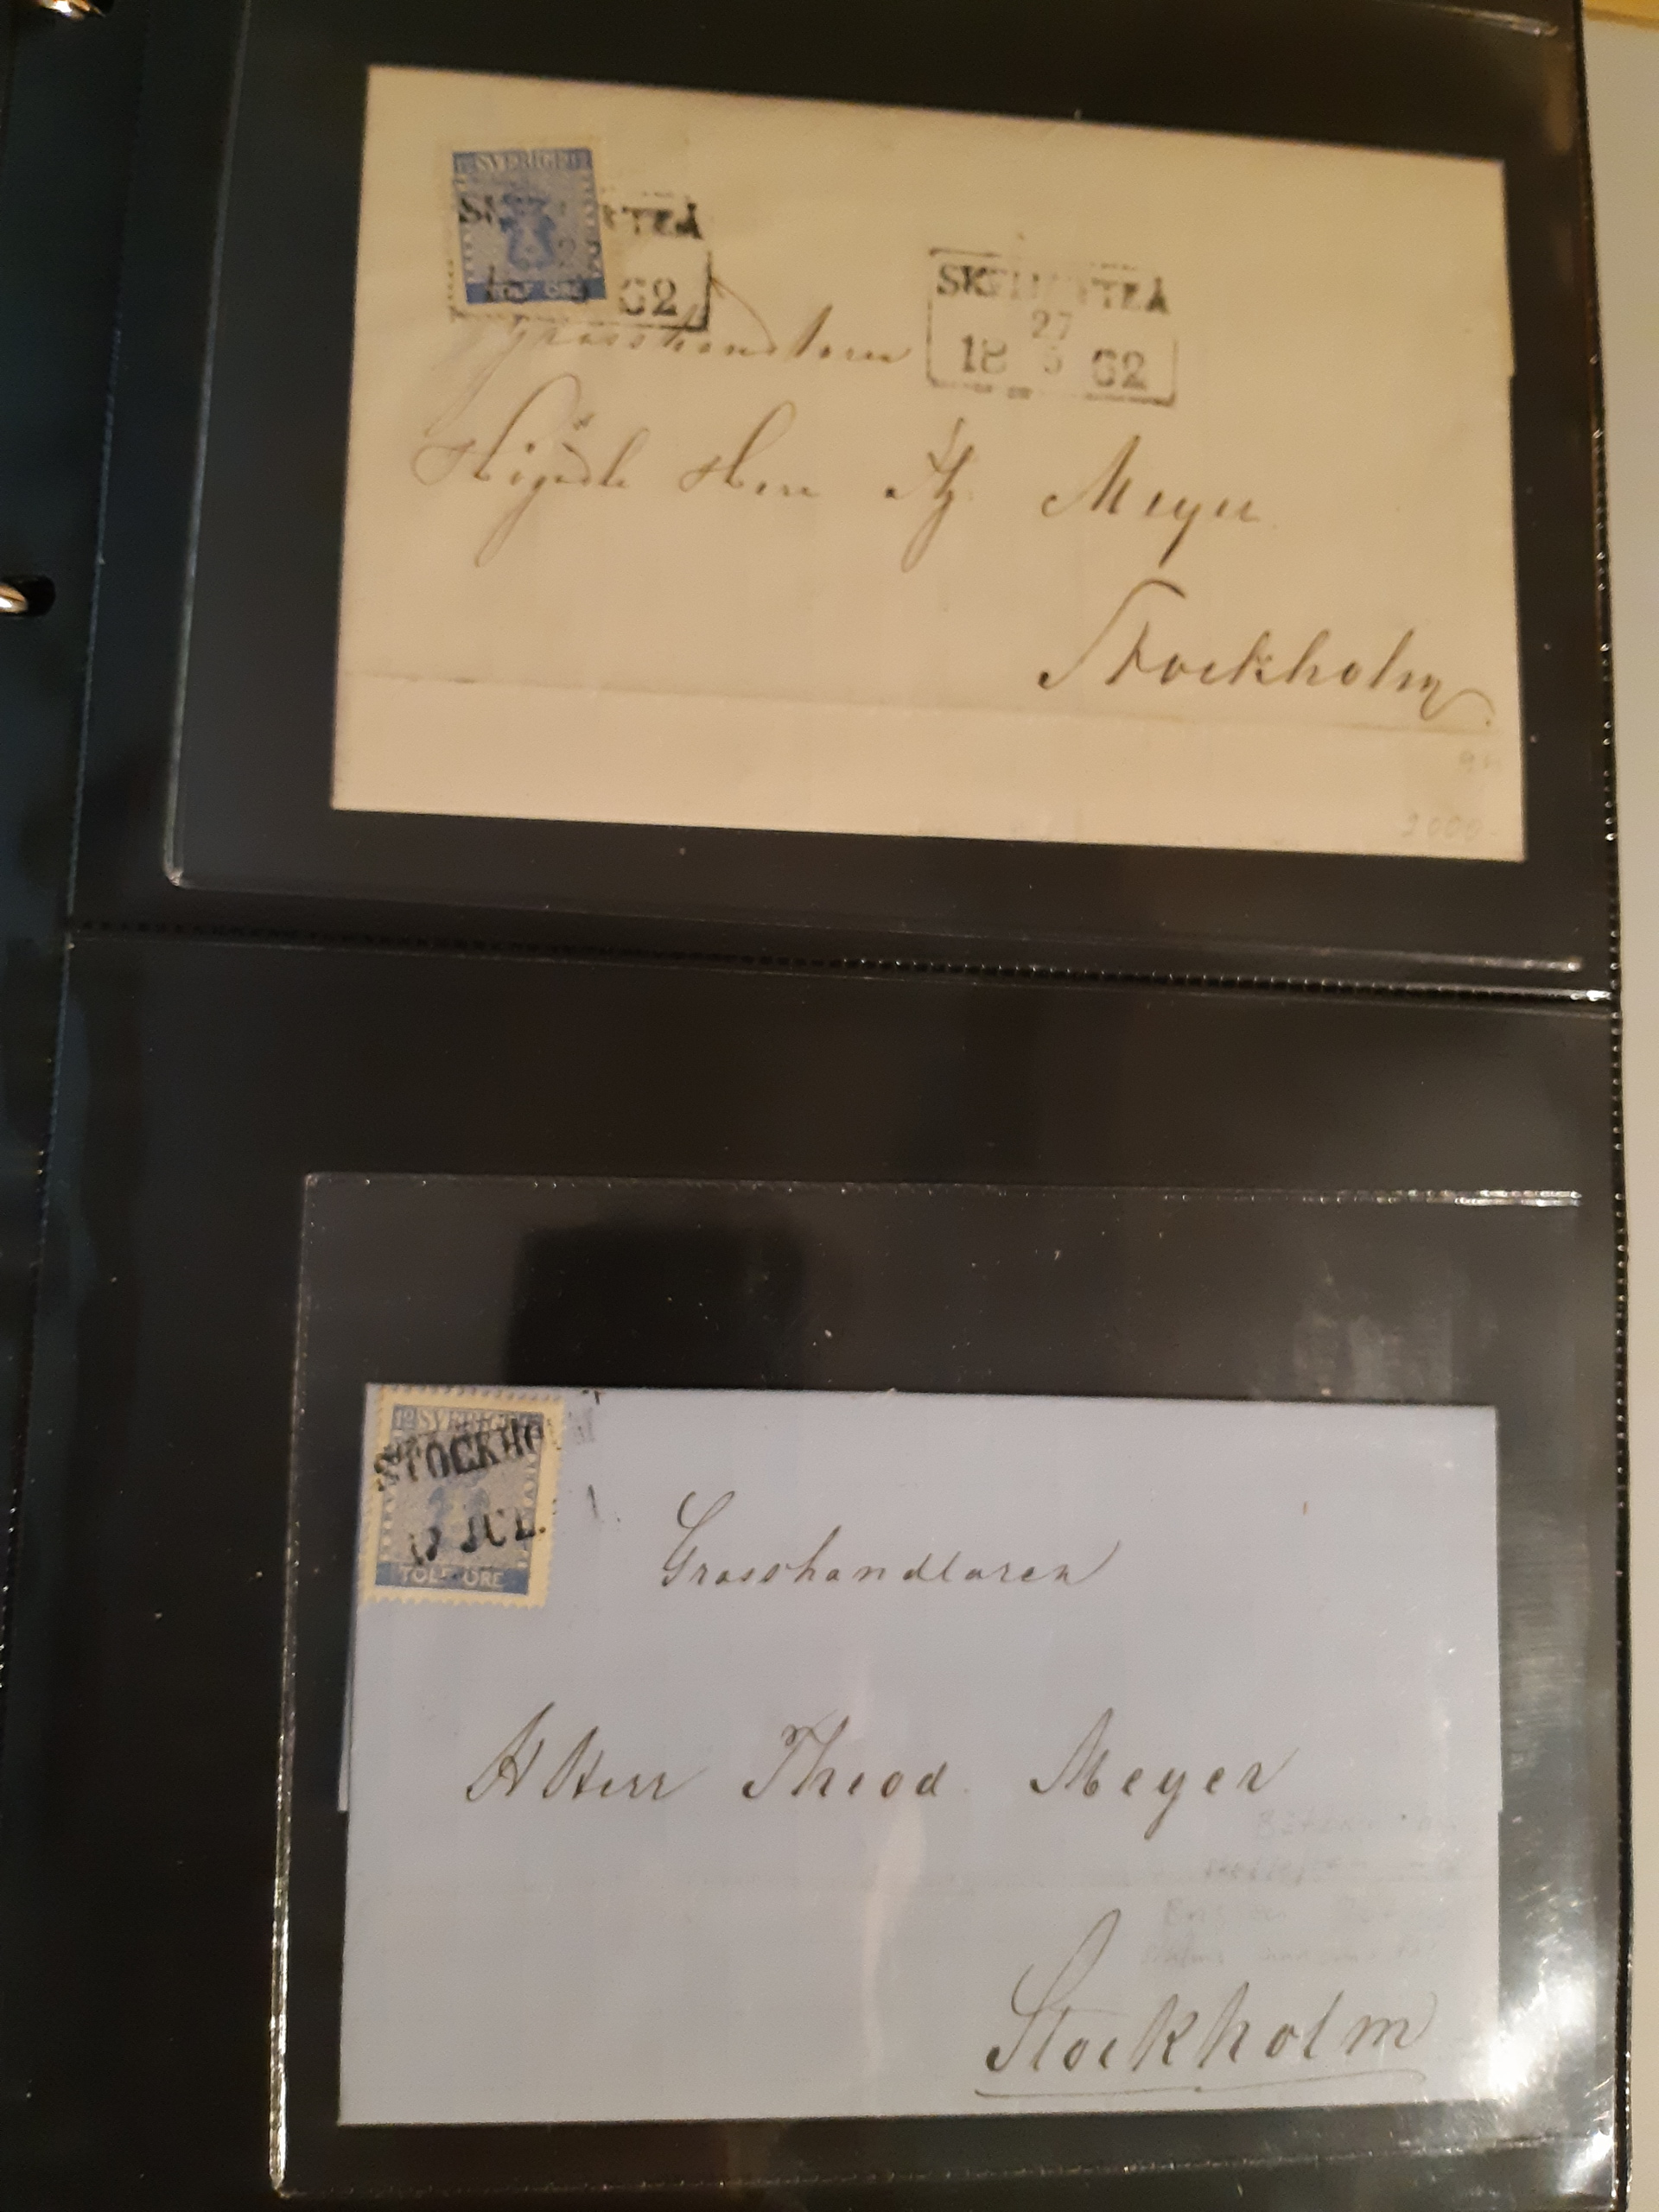 SVERIGE
TOLF ÖRE
62
27
18 5 62
Grosshandlaren
Högädle Herr Th. Meyer
Stockholm
2000-
12 SVERIGE
STOCKHO
JUL.
TOLF ÖRE
Grosshandlaren
H Herr Theod. Meyer
Stockholm